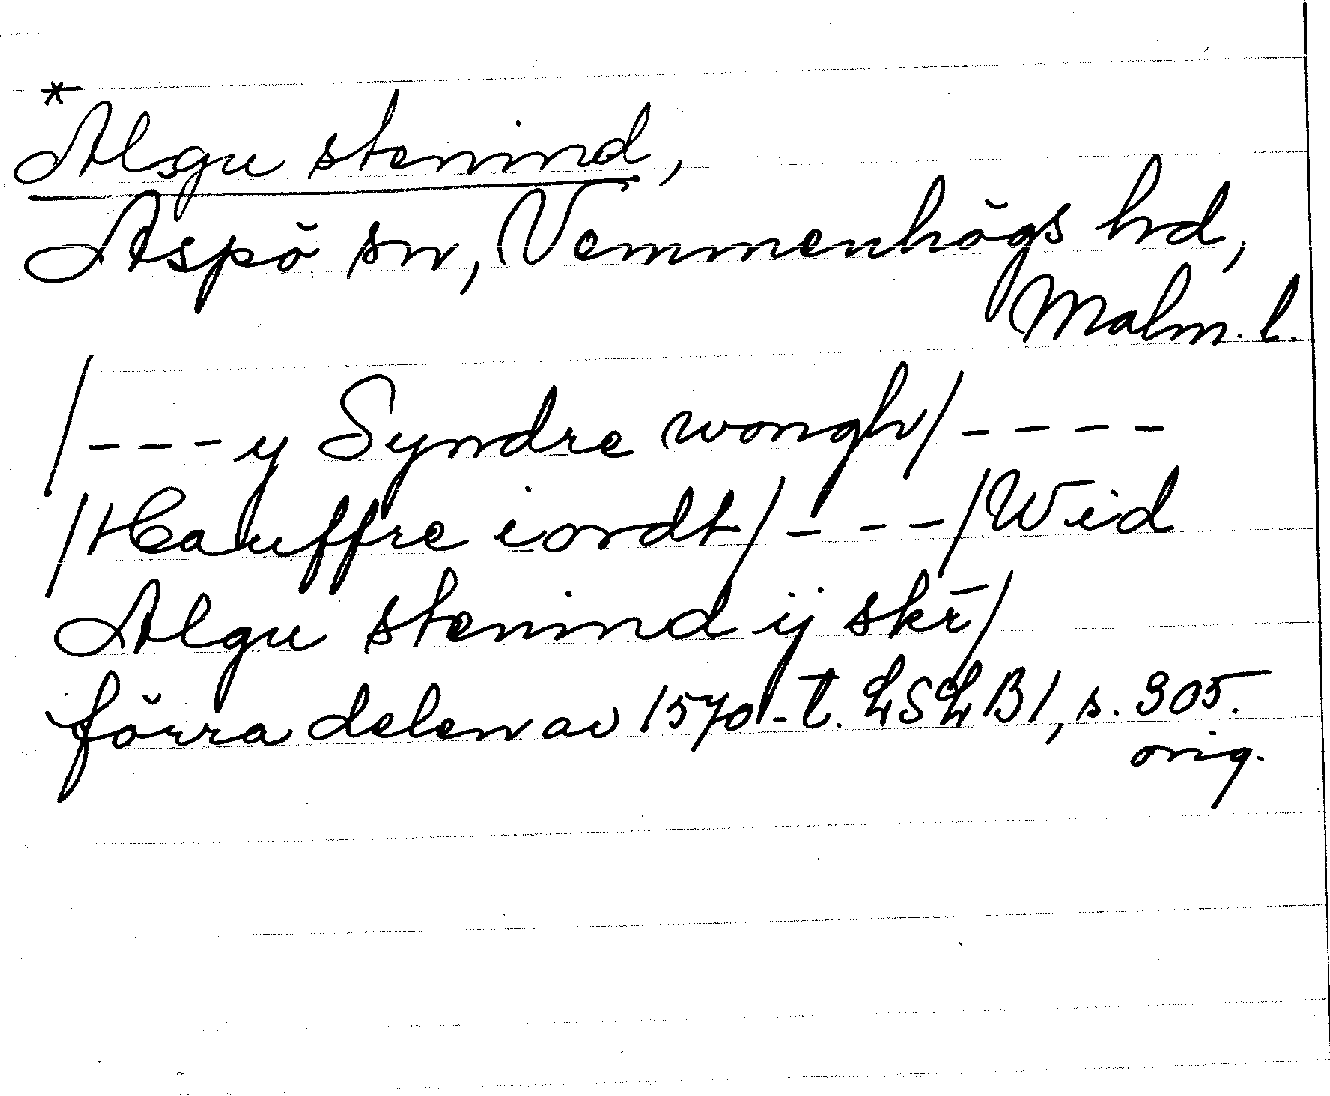 *
Algu stenind,
Aspö sn, Vemmenhögs hd,
Malm. l.
/---y Syndre wongh/----
/Hauffre iordt/---/Wid
Algu stenind ij skr̄/
förra delen av 1570-t. LSLB1, s. 305.
orig.